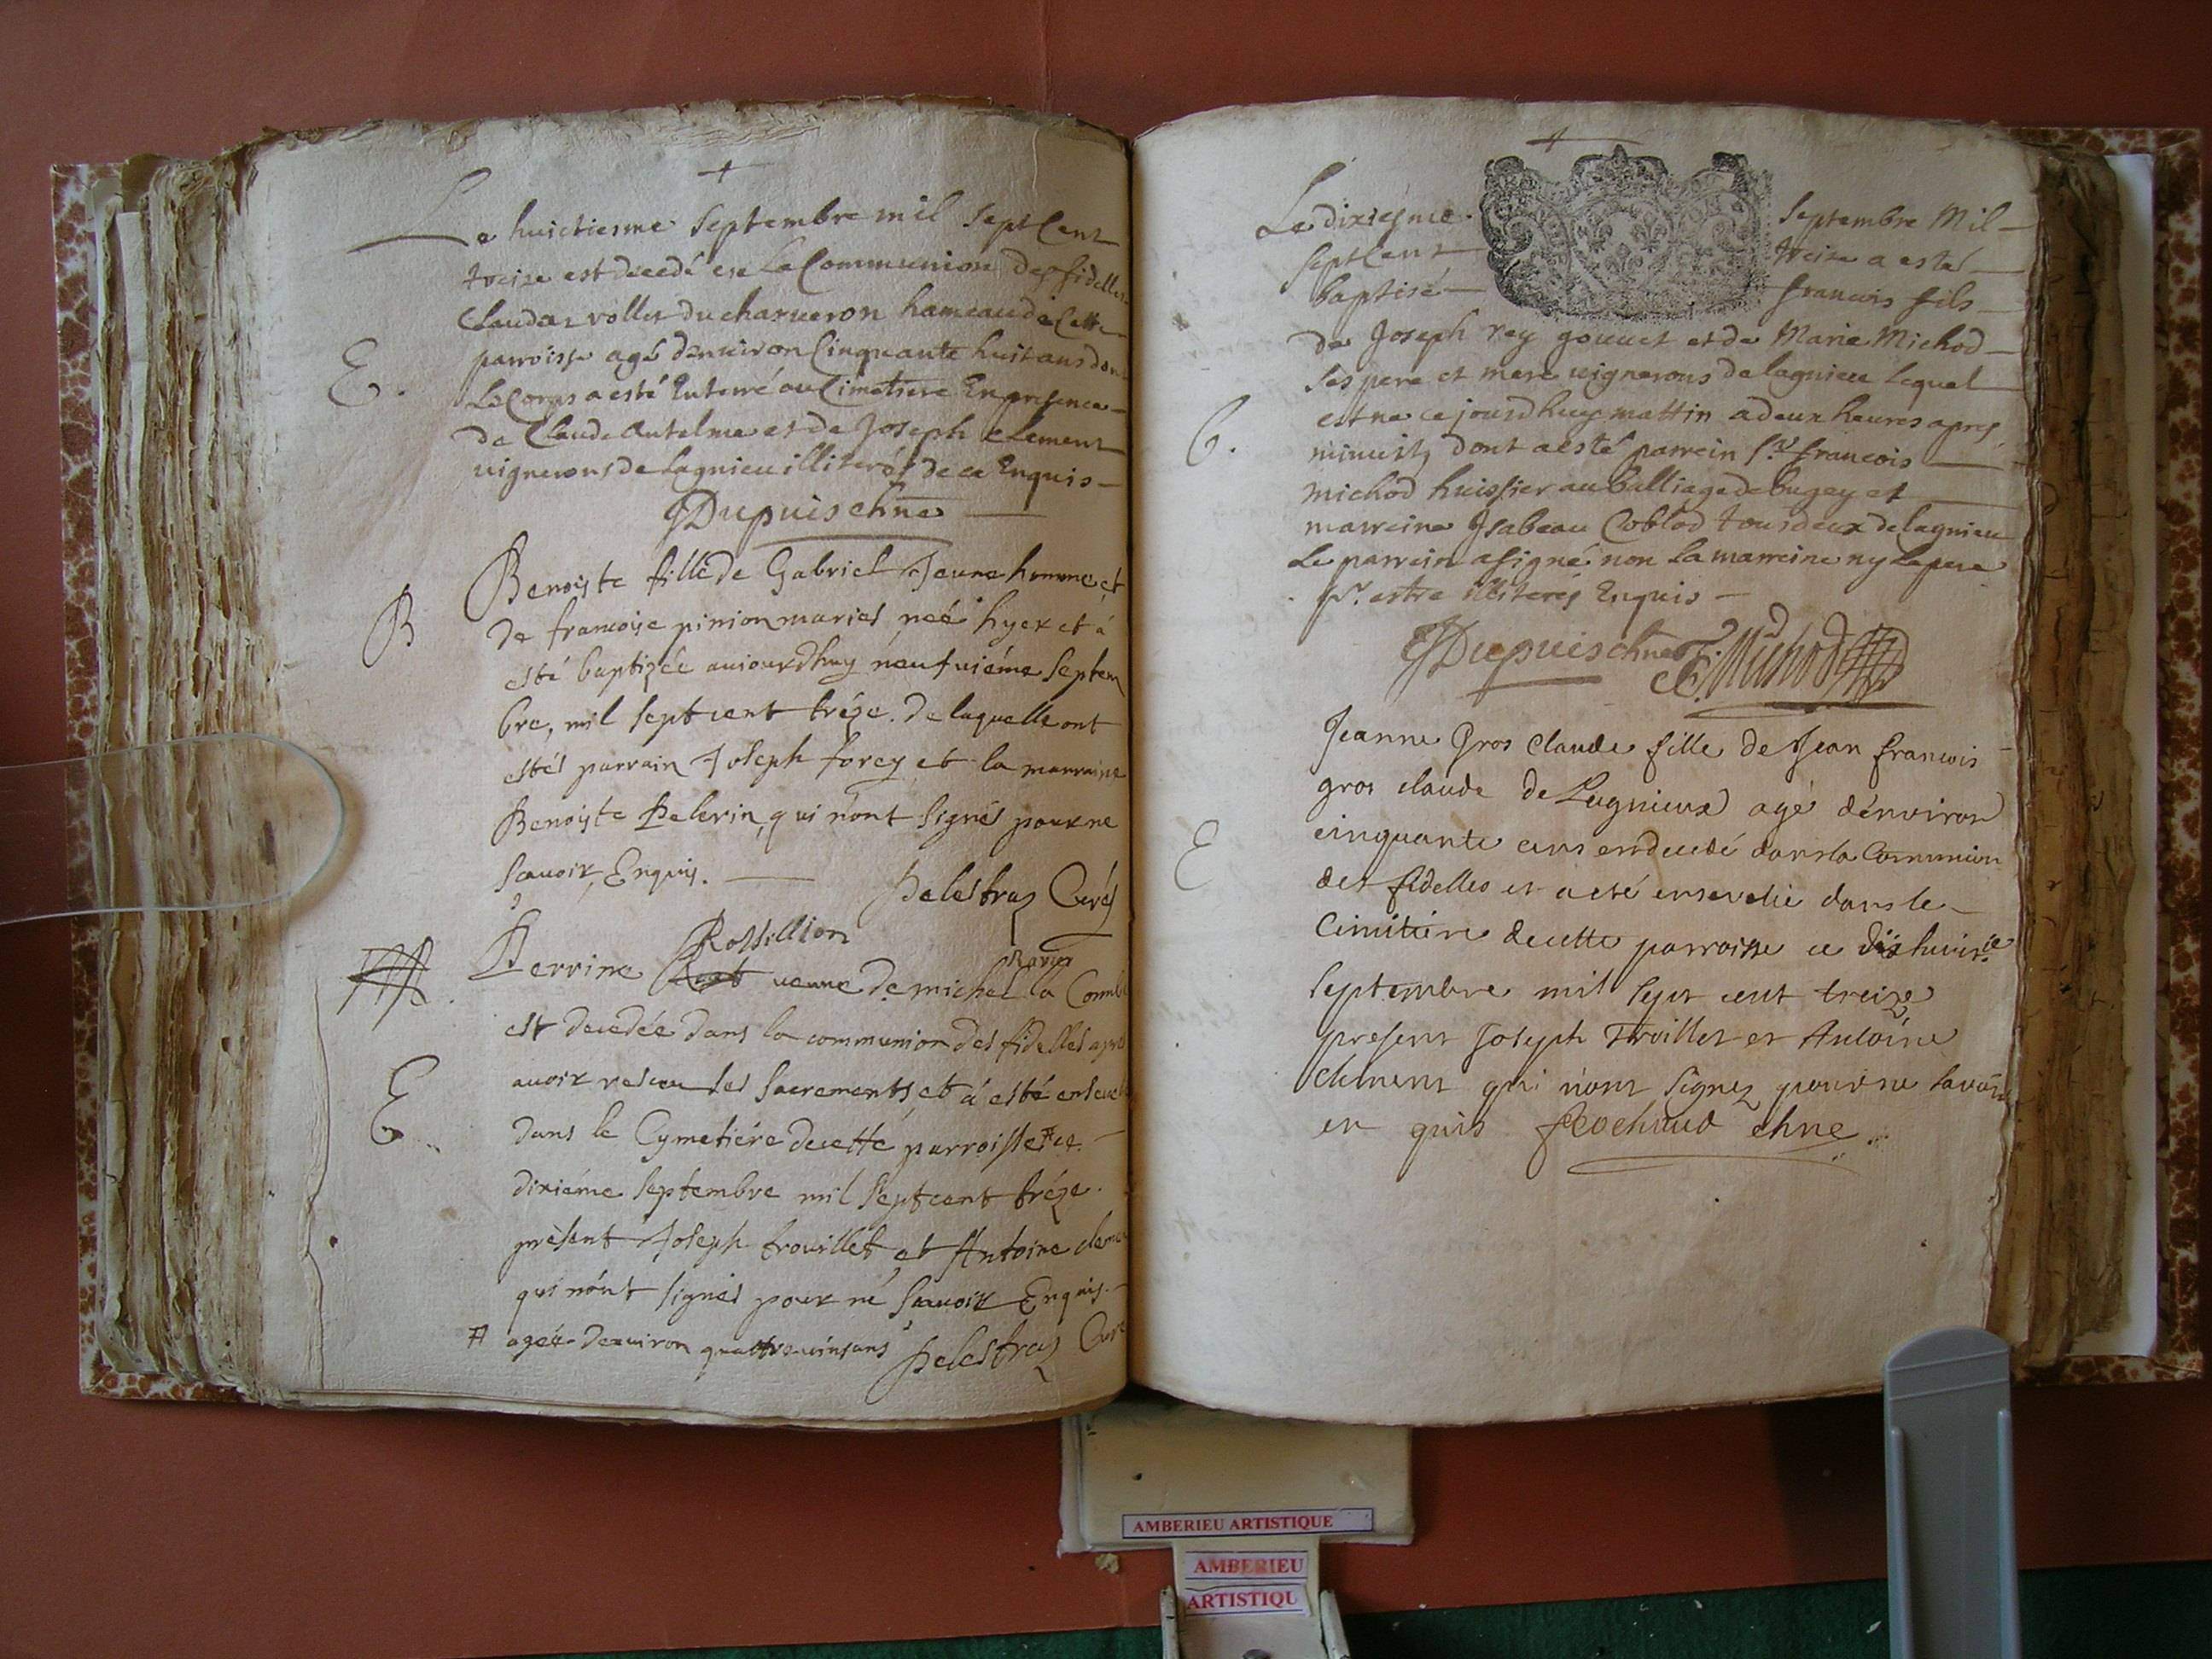 Le huictiesme Septembre mil Sept Cent
treize est decedé en La Communion des fidelles
Claudaz vollet du charveron hameau de Cette
parroisse agé denviron Cinquante huit ans dont
E.
Le Corps a esté Enterré au Cimetiere En presence
de Claude Antelme et de Joseph Clement
vignerons de Lagnieu illiterés de ce Enquis
JDupuis chne
Benoiste fille de Gabriel Jeune homme et
B
de francoise pinion mariés née hyer et á
esté baptizée aujourdhuy neufuiéme Septem
bre, mil Sept cent tréze. de laquelle ont
estés parrain Joseph forey et la marraine
Benoiste Pelerin, qui n'ont signés pour ne
Scavoir, Enquis.
Delestraz Curé
Rossillion
Ravier
Perrine veuve de michel la Combe
est decedée dans la communion des fidelles apres
E
avoir resceu les sacrements, et á esté enseveli
dans le Cymetiére de cette parroisse # ce
dixiéme Septembre mil Sept cent tréze.
présent Joseph trouillet et Antoine clement
qui n'ont signés pour ne Scavoir Enquis.
# agée denviron quattre vins ans
Delestraz Curé
Le dixiésme Septembre Mil
Sept Cent treize a esté
baptisé francois fils
de Joseph rey gouvet et de Marie Michod
ses pere et mere vignerons de lagnieu Lequel
est ne ce jourdhuy mattin a deux heures apres
B.
minuit, dont a esté parrein Sr. francois
michod huissier au balliage de bugey et
marreine Isabeau Coblod tous deux de lagnieu
Le parrein a signé non la marreine ny le pere
pr. estre illiterés Enquis
JDupuis chne F. Michod
Jeanne Gros claude fille de Jean francois
gros claude de Lagnieux agé dénviron
cinquante ans en decedé dans la Communion
E
des fidelles et a eté enseveli dans le
Cimitiére de cette parroisse ce dix huict.e
Septembre mil Sept cent treize
present Joseph Trvillet et Antoine
clement qui n'ont signez pour ne savoir
en quis chne
AMBERIEU ARTISTIQUE
AMBERIEU
ARTISTIQU